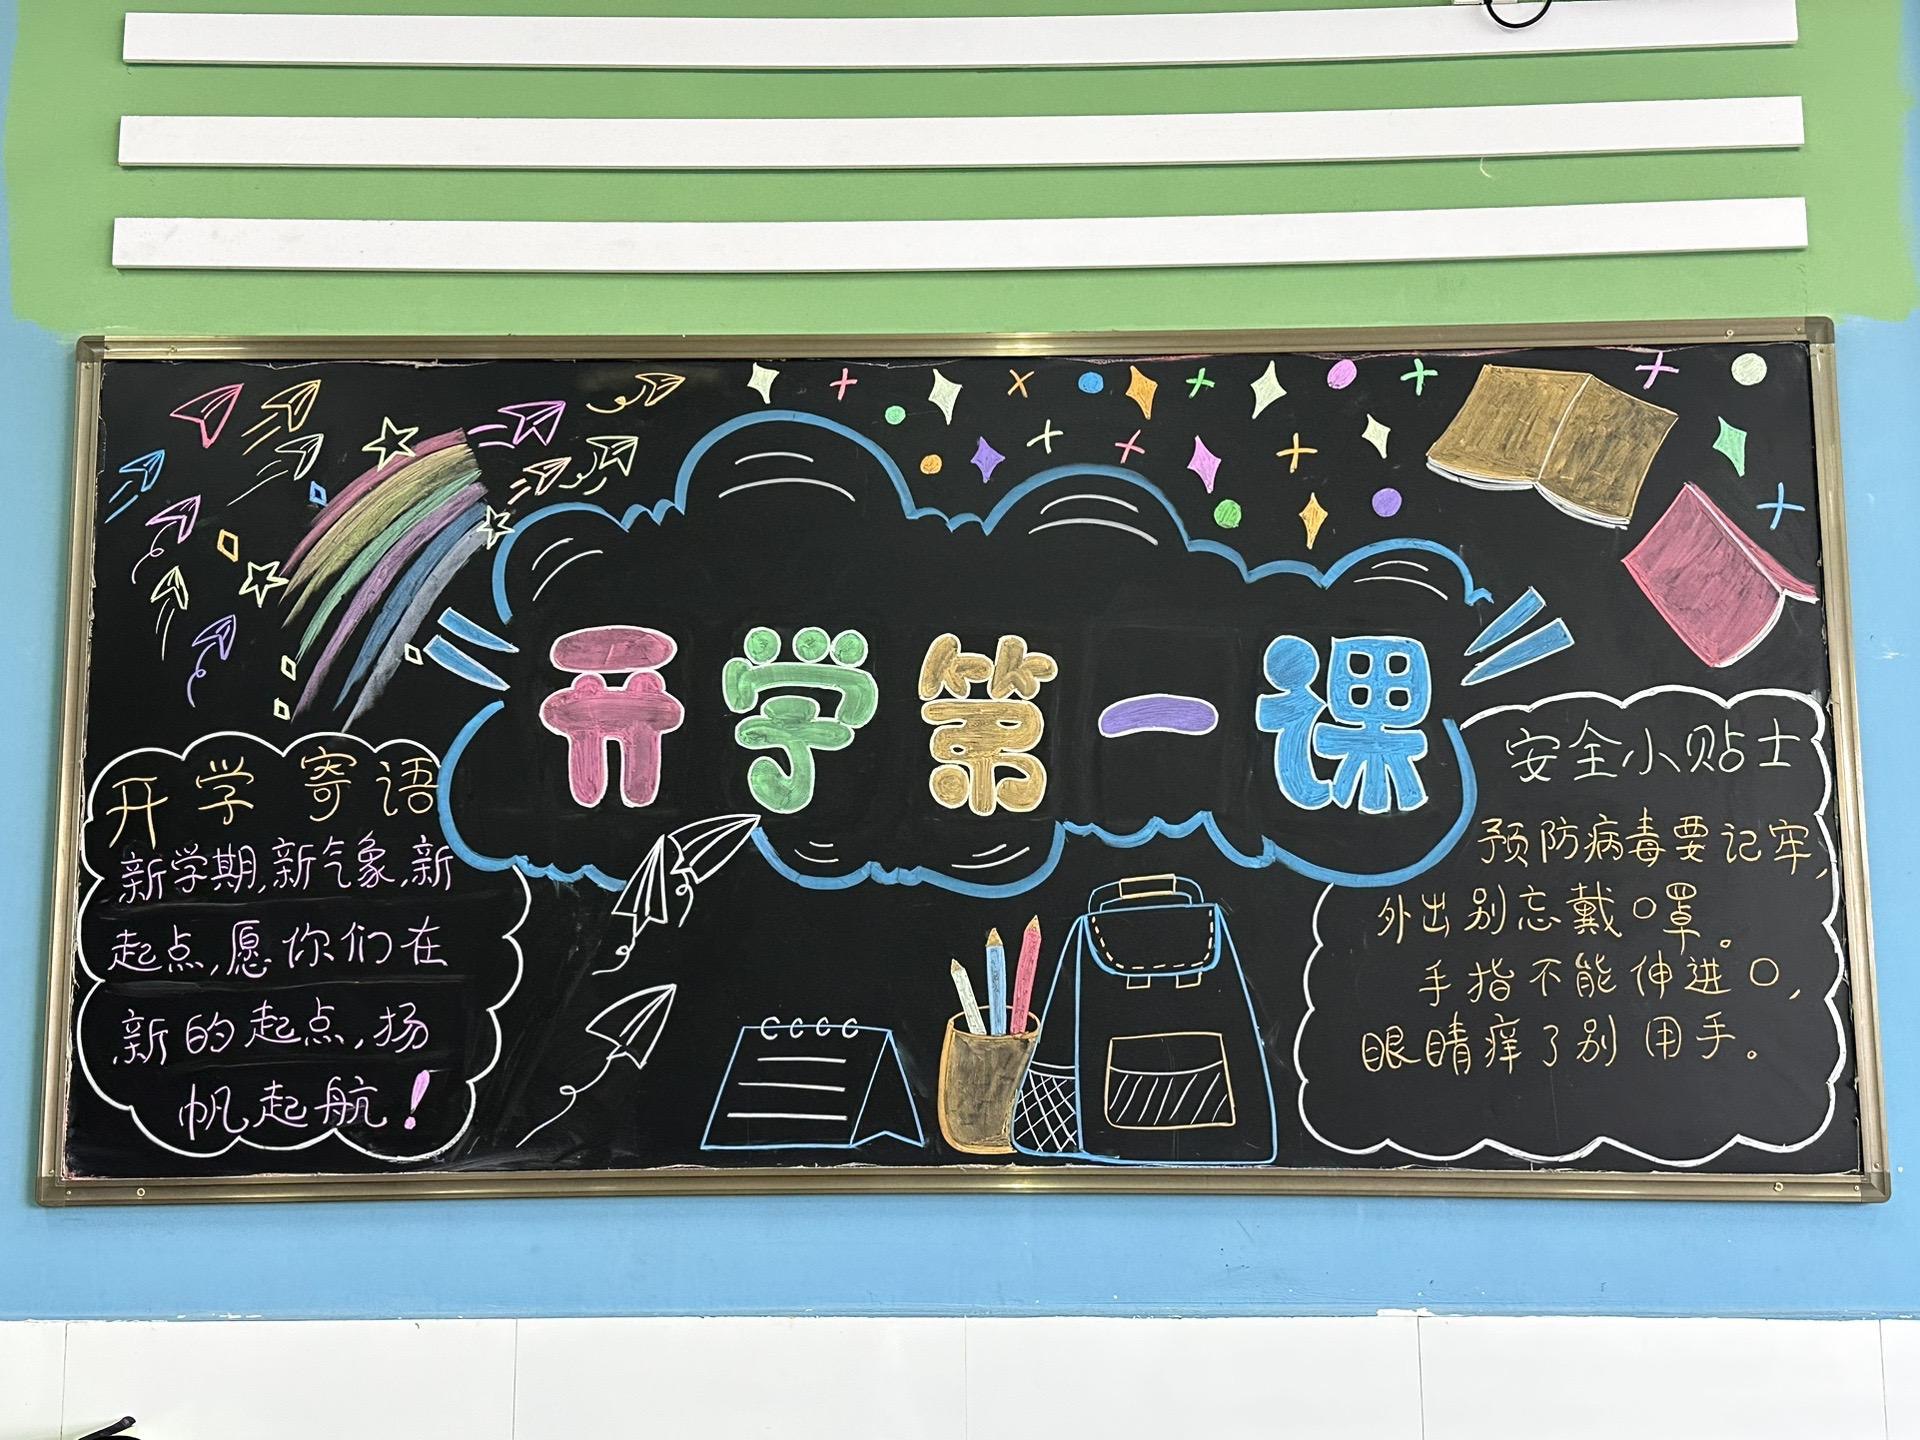 开学第一课
开学寄语
新学期,新气象,新
起点,愿你们在
新的起点,扬
帆起航!
安全小贴士
预防病毒要记牢,
外出别忘戴口罩。
手指不能伸进口,
眼睛痒了别用手。